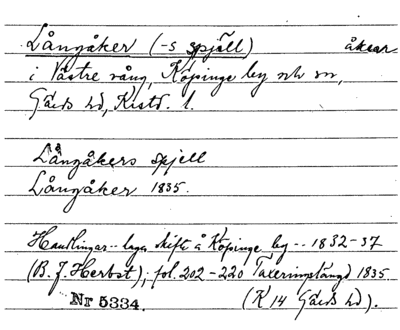 Långåker (-s spjäll) åkrar
i Västre vång, Köpinge by och sn,
Gärds hd, Kristd. l.
Långåkers spjell
Långåker 1835.
Handlingar .. laga skifte å Köpinge by .. 1832-37
(B. J. Herbst); fol. 202-220 Taxeringslängd 1835
Nr 5334. (K 14 Gärds hd).